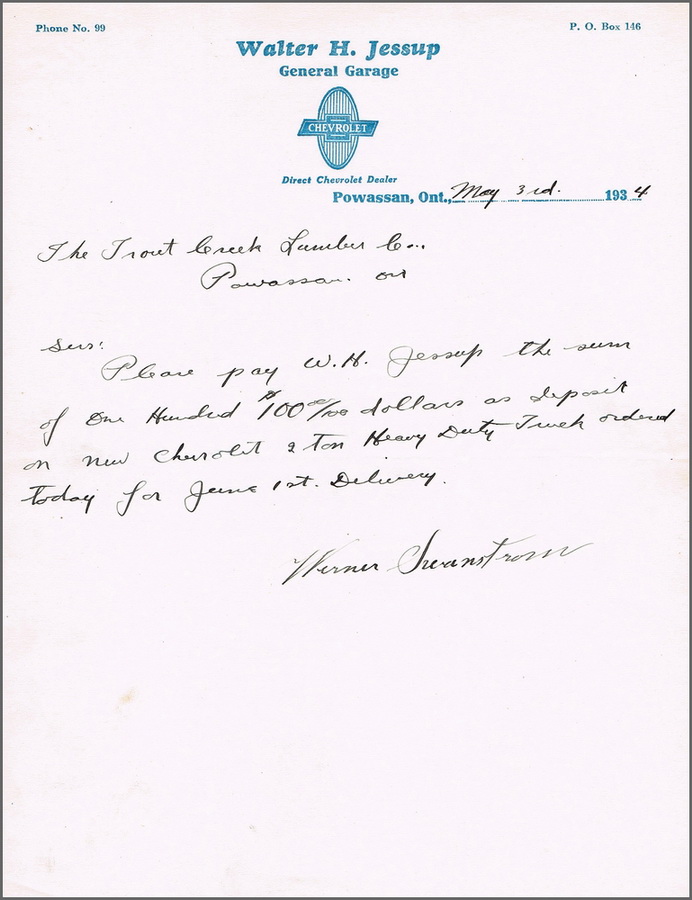 Phone No. 99
P. O. Box 146
Walter H. Jessup
General Garage
CHEVROLET
Direct Chevrolet Dealer
Powassan, Ont., May 3rd. 1934
The Trout Creek Lumber Co..
Powassan. ont
Sirs:
Please pay W.H. Jessup the sum
of One Hundred $100 00/100 dollars as deposit
on new Chevrolet 2 ton Heavy Duty Truck ordered
today for June 1st. Delivery.
Werner Swanstrom